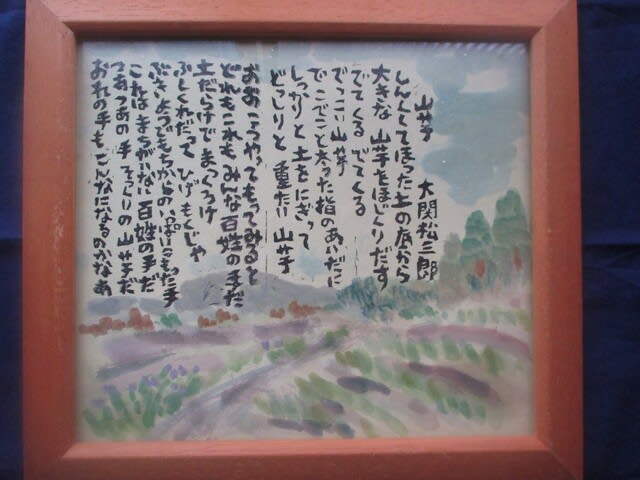 山芋　大関松三郎
しんくしてほった土の底から
大きな 山芋をほじくりだす
でてくる でてくる
でっこい 山芋
でこでこと太った指のあいだに
しっかりと 土をにぎって
どっしりと 重たい 山芋
おお こうやってもってみると
どれもこれも みんな百姓の手だ
土だらけで まっくろけ
ふしくれだって ひげもくじゃ
ぶきようでもちからのいっぱいこもった手
これは まちがいない 百姓の手だ
つあつあの手 そっくりの 山芋だ
おれの手も こんなになるのかなあ